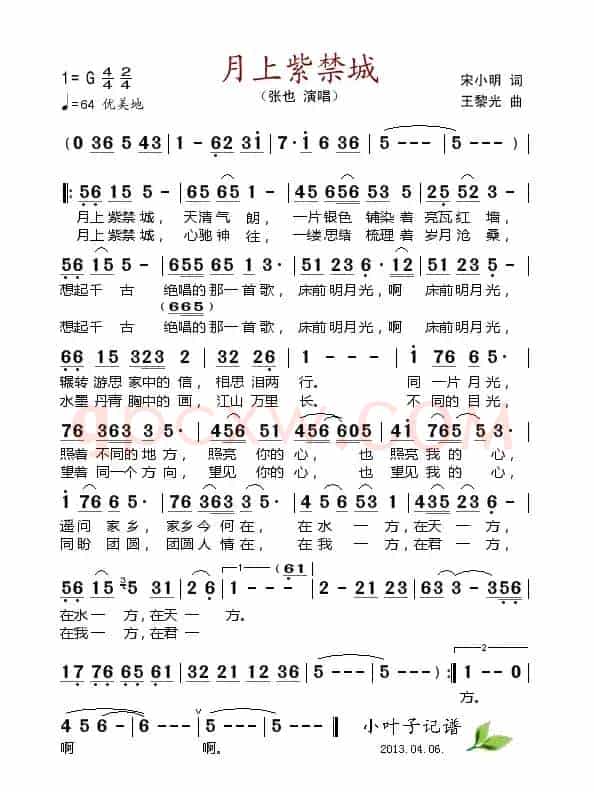 月上紫禁城
1=G 4/4 2/4
(张也 演唱)
宋小明 词
♩=64 优美地
王黎光 曲
(0 36 5 43 | 1 - 62 31 | 7· 1 6 36 | 5 - - - | 5 - - ) |
‖: 56 15 5 - | 65 65 1 - | 45 656 53 5 | 25 52 3 - |
月上紫禁城， 天清气 朗， 一片银色 辅染着 亮瓦红 墙，
月上紫禁城， 心驰神 往， 一缕思绪 梳理着 岁月沧 桑，
56 15 5 - | 655 65 1 3· | 51 23 6· 12 | 51 23 5 - |
想起千 古 绝唱的那一首歌， 床前明月光，啊 床前明月光，
(665)
想起千 古 绝唱的那一首歌， 床前明月光，啊 床前明月光，
66 15 323 2 | 32 26 | 1 - - - | 0 1 76 65 |
辗转游思家中的信，相思泪两 行。 同一片月光，
水墨丹青胸中的画，江山万里 长。 不同的目光，
76 363 3 5 | 456 51 | 456 605 | 41 765 5 - |
照着不同的地方，照亮 你的心，也 照亮我的 心，
望着同一个方向，望见 你的心，也 望见我的 心，
1 76 6 5· | 76 363 3 - | 4 6 56 53 | 1 435 23 |
遥问 家乡，家乡今何在， 在水 一 方，在天一 方，
同盼 团圆，团圆人情在， 在我 一 方，在君一 方，
56 15 3 5 31 | 2 6· | 1 - - - | 2 - 3 - | 3 - - 356 |
1
(61
在水一 方，在天一 方。
在我一 方，在君一
17 76 65 61 | 5 - - - | 32 2 12 36 | 5 - - - | 5 - - ) :‖ 1 - - 0 |
2
方。
4 5 6 6 - | 6 - 56 | 5 - - - | 5 - - - ‖
啊 啊。
小叶子记谱
2013.04.06.